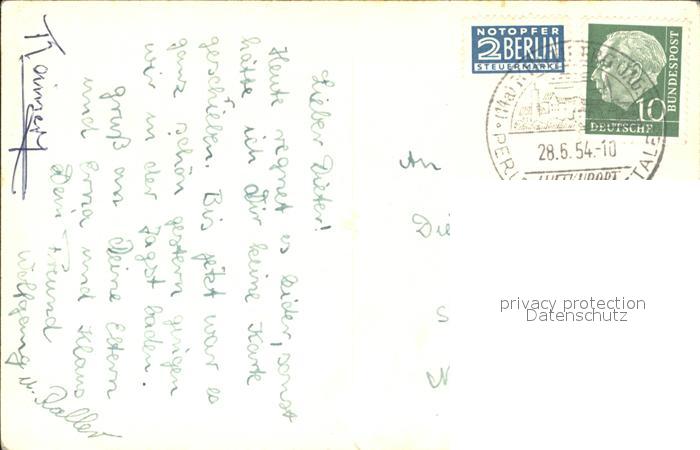 Lieber Dieter!
Heute regnet es leider, sonst
hätte ich Dir keine Karte
geschrieben. Bis jetzt war es
ganz schön gestern gingen
wir in der Jagst baden.
Gruß an Deine Eltern
und Erna und Klaus
Dein Freund
Wolfgang u.
NOTOPFER
2 BERLIN
STEUERMARKE
DEUTSCHE
BUNDESPOST
10
28.6.54.-10
LUFTKURORT
An
Die
S
N
privacy protection
Datenschutz